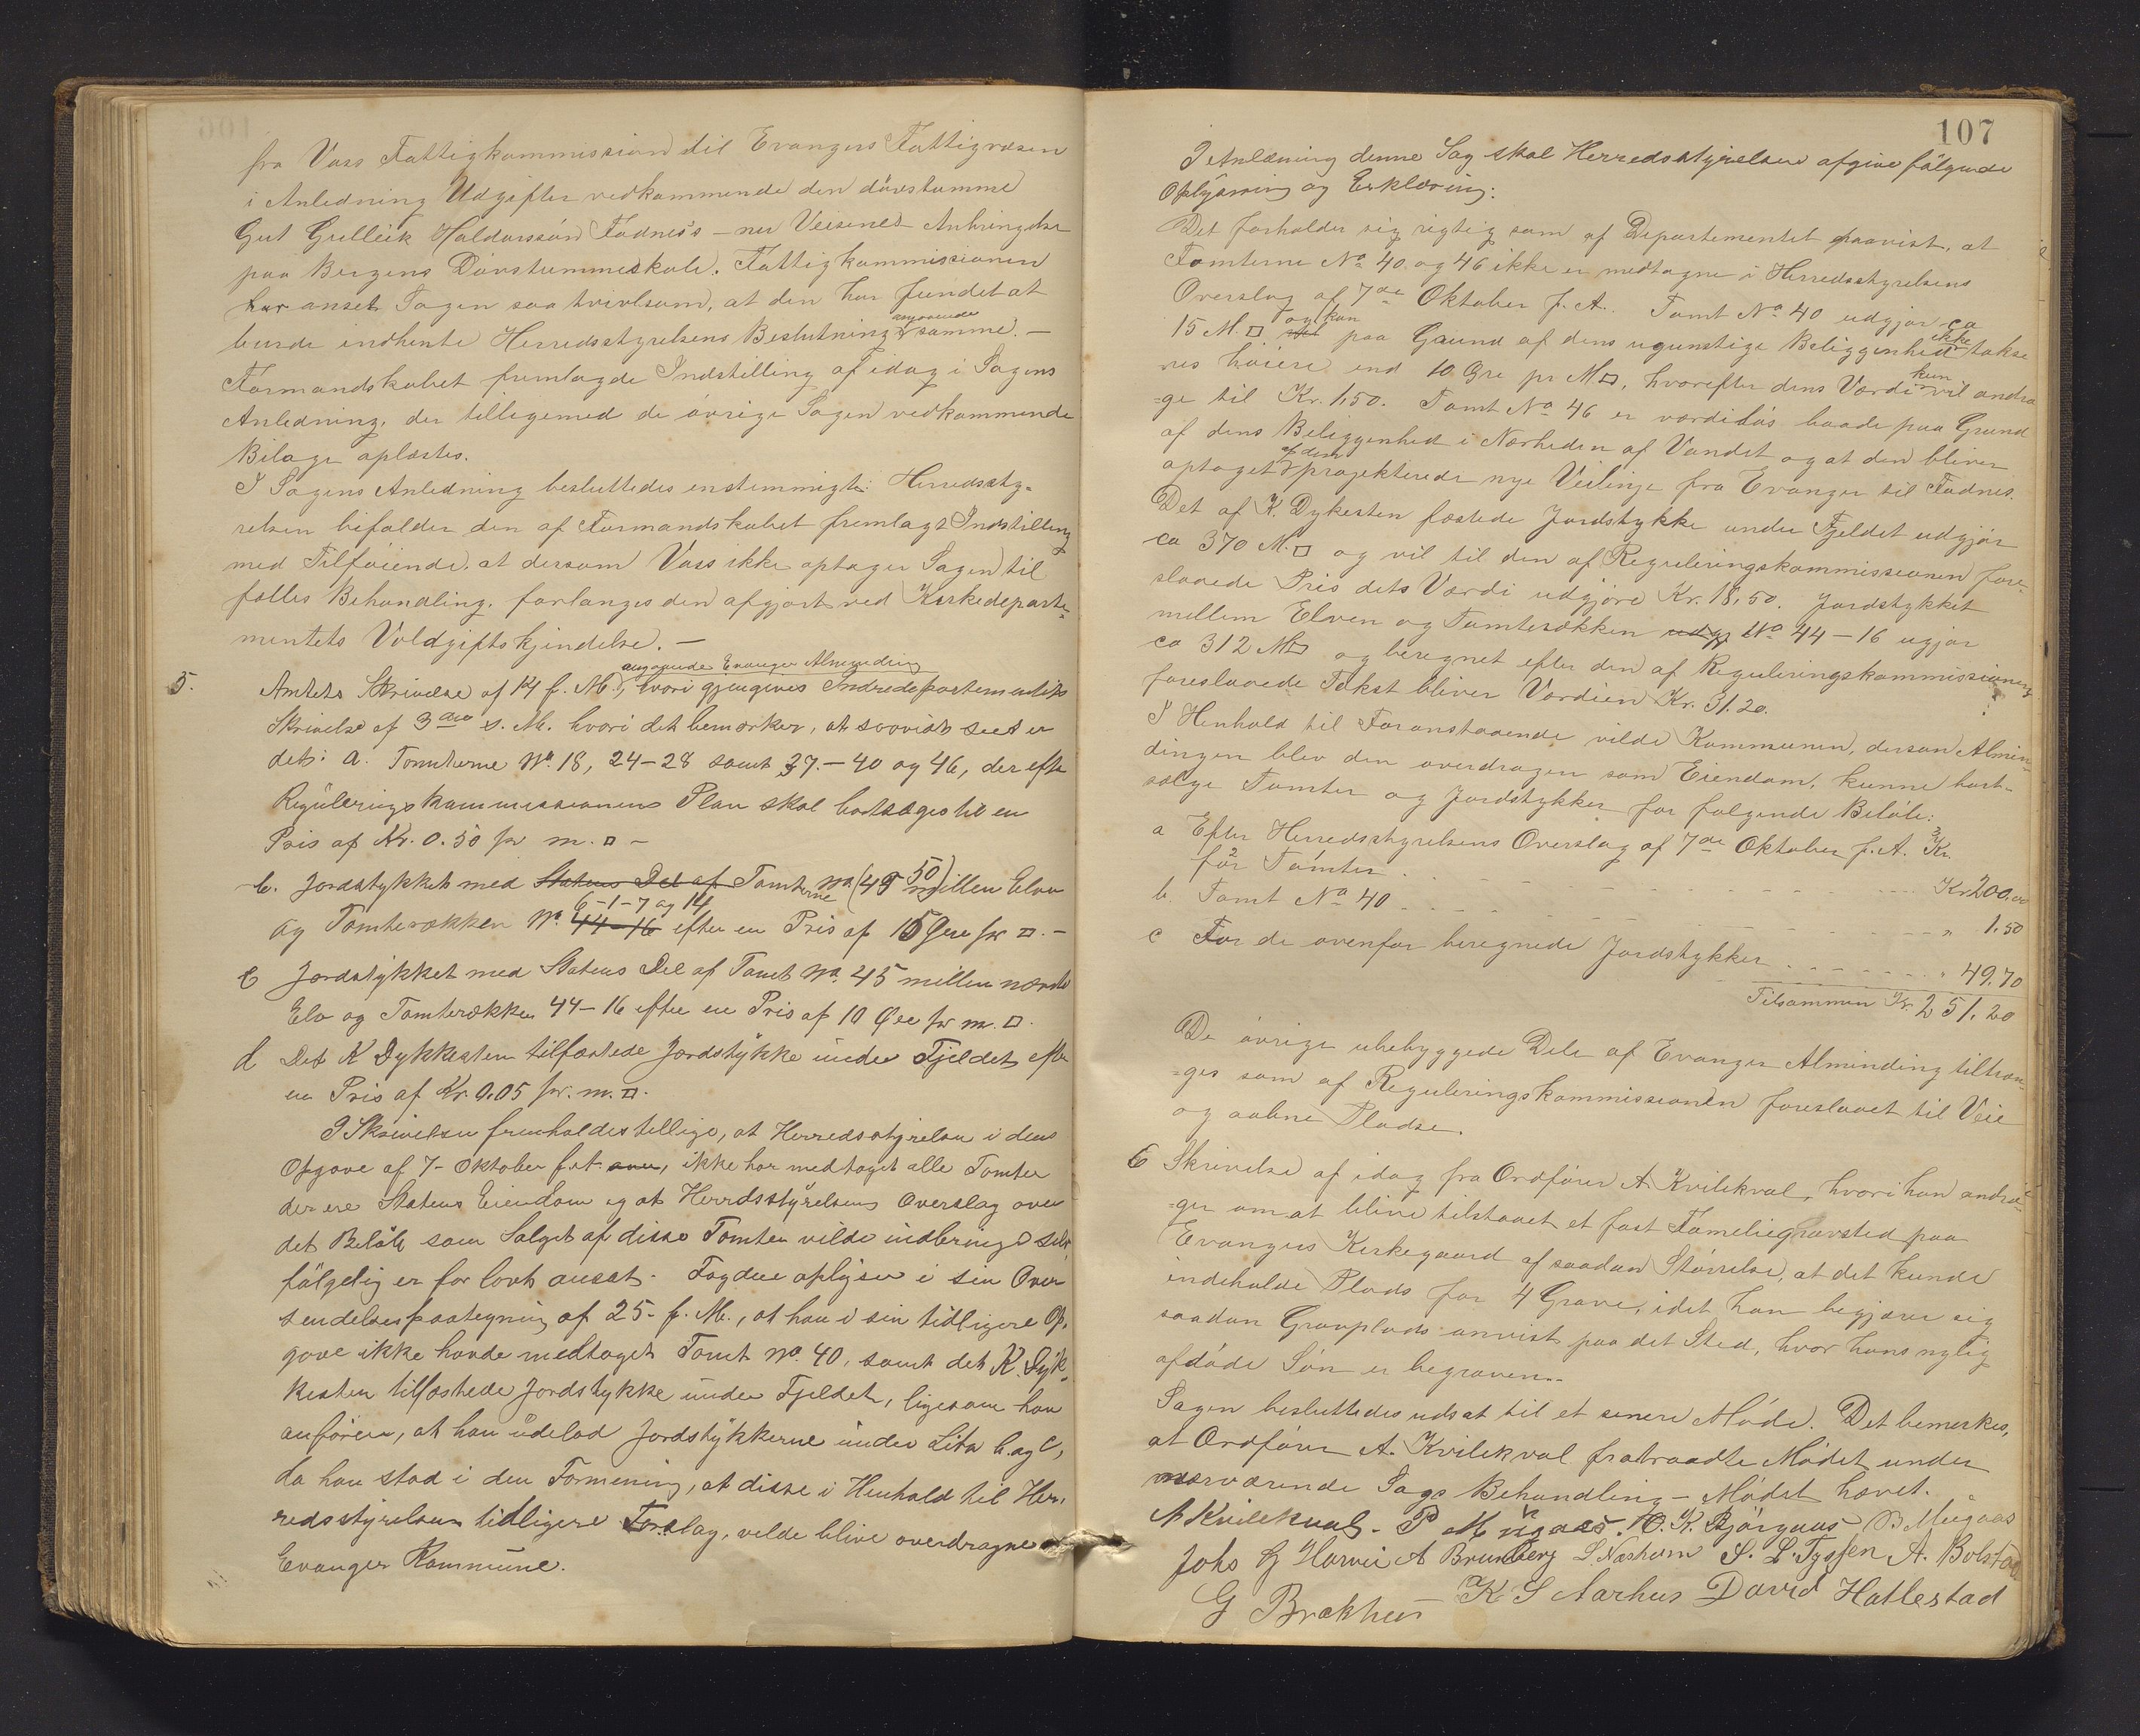 fra Voss Fattigkommission til Evangers Fattigvæsen
i Anledning Udgifter vedkommende den døvstumme
Gut Gulleik Haldorssøn Fadnes's – nu Veisenes Anbringelse
paa Bergens Døvstummeskole. Fattigkommissionen
har anset Sagen saa tvivlsom, at den har fundet at
burde indhente Herredsstyrelsens Beslutning angaaende samme. –
Formandskabet fremlagde Indstilling af idag i Sagens
Anledning, der tilligemed de øvrige Sagen vedkommende
Bilage oplæstes.
I Sagens Anledning besluttedes enstemmigt: Herredssty-
relsen bifalder den af Formandskabet fremlagt Indstilling
med Tilføiende, at dersom Voss ikke optager Sagen til
fælles Behandling, forlanges den afgjort ved Kirkedeparte-
mentets Voldgiftskjendelse. –
5. Amtets Skrivelse af 14 f. M., angaaende Evanger Alminding, hvori gjengives Indredepartementets
Skrivelse af 3die s. M. hvori det bemærker, at saavidt seet er
det: a. Tomterne No. 18, 24–28 samt 37.–40 og 46, der efter
Reguleringskommissionens Plan skal bortsælges til en
Pris af Kr. 0.50 pr m. □ –
b. Jordstykket med Statens Del af Tomterne No (49 50) mellem Elven
og Tomterækken No. 44–16 6–1–7 og 14 efter en Pris af 15 Øre pr □. –
c Jordstykket med Statens Del af Tomt No. 45 mellem nævnte
Elv og Tomterækken 44–16 efter en Pris af 10 Øre pr m. □.
d Det K Dykkesten tilfæstede Jordstykke under Fjeldet efter
en Pris af Kr 0.05 pr. m. □.
I Skrivelsen fremholdes tillige, at Herredsstyrelsen i dens
Opgave af 7– Oktober f. A. , ikke har medtaget alle Tomter
der ere Statens Eiendom og at Herredsstyrelsens Overslag over
det Beløb som Salget af disse Tomter vilde indbringe selv-
følgelig er for lavt ansat. Fogden oplyser i sin Over
sendelsespaategning af 25– f. M., at han i sin tidligere Op-
gave ikke havde medtaget Tomt No. 40, samt det K. Dyk-
kesten tilfæstede Jordstykke under Fjeldet, ligesom han
anfører, at han udelod Jordstykkerne under Litr b. og c,
da han stod i den Formening, at disse i Henhold til Her-
redsstyrelsens tidligere Forslag, vilde blive overdragne
Evanger Kommune.
107
I Anledning denne Sag skal Herredsstyrelsen afgive følgende
Oplysning og Erklæring:
Det forholder sig rigtig som af Departementet paavist, at
Tomterne No 40 og 46 ikke er medtagne i Herredsstyrelsens
Overslag af 7de Oktober f. A. Tomt No 40 udgjør ca
15 M. □ og kan paa Grund af dens ugunstige Beliggenhed ikke takse
res høiere end 10 Øre pr M □, hvorefter dens Værdi kun vil andra
=ge til Kr. 1,50. Tomt No 46 er værdiløs baade paa Grund
af dens Beliggenhed i Nærheden af Vandet og at den bliver
optaget af den projekterede nye Veilinje fra Evanger til Fadnes.
Det af K. Dykesten fæstede Jordstykke under Fjeldet udgjør
ca 370 M. □ og vil til den af Reguleringskommissionen fore-
slaaede Pris dets Værdi udgjøre Kr. 18,50. Jordstykket
mellem Elven og Tomterækken udgj No 44–16 ugjør
ca 312 M □ og beregnet efter den af Reguleringskommissionens
foreslaaede Takst bliver Værdien Kr. 31.20.
I Henhold til Foranstaaende vilde Kommunen, dersom Almin-
dingen blev den overdragen som Eiendom, kunne bort-
sælge Tomter og Jordstykker for følgende Beløb:
a Efter Herredsstyrelsens Overslag af 7de Oktober f. A.
for 2 Tomter . – – – – – Kr 200,00
b. Tomt No 40 – – – – – " 1.50
c For de ovenfor beregnede Jordstykker . – – – " 49.70
Tilsammen Kr. 251.20
De øvrige ubebyggede Dele af Evanger Alminding tiltræn-
=ges som af Reguleringskommissionen foreslaaet til Veie
og aabne Pladse.
6 Skrivelse af idag fra Ordfører A. Kvilekval, hvori han andra-
=ger om at blive tilstaaet et fast Familiegravsted paa
Evangers Kirkegaard af saadan Størrelse, at det kunde
indeholde Plads for 4 Grave, idet han begjærer sig
saadan Gravplads anvist paa det Sted, hvor hans nylig
afdøde Søn er begraven. –
Sagen besluttedes udsat til et senere Møde. Det bemerkes,
at Ordfører A. Kvilekval fratraadte Mødet under
nærværende Sags Behandling – Mødet hævet.
A Kvilekval. P Mügaas. O. K. Bjørgaas B Mügaas
Johs G Horvei A Brunborg L Næsheim S. L. Tyssen A. Bolstad
G Brækhus K S Aarhus David Hatlestad